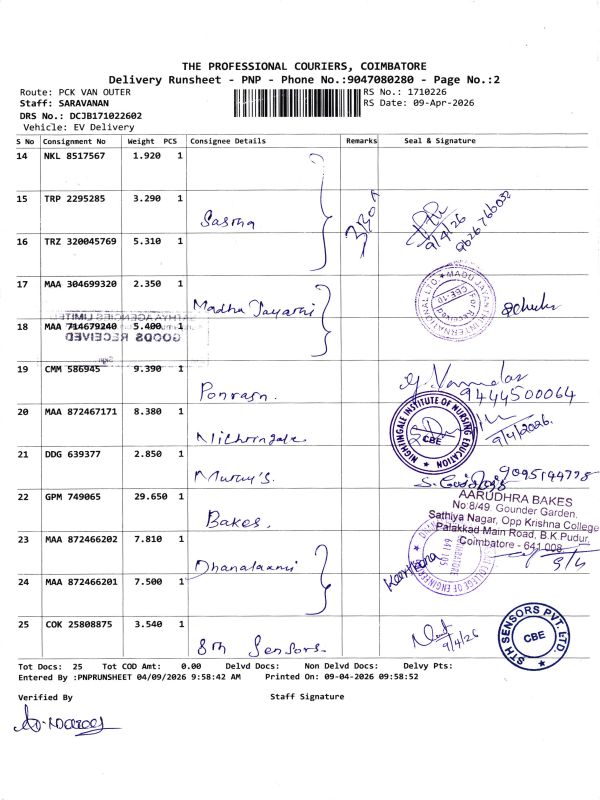 THE PROFESSIONAL COURIERS, COIMBATORE
Delivery Runsheet - PNP - Phone No.:9047080280 - Page No.:2
Route: PCK VAN OUTER
RS No.: 1710226
Staff: SARAVANAN
RS Date: 09-Apr-2026
DRS No.: DCJB171022602
Vehicle: EV Delivery
S No Consignment No Weight PCS Consignee Details Remarks Seal & Signature
14 NKL 8517567 1.920 1
15 TRP 2295285 3.290 1
9/4/26
9626766032
16 TRZ 320045769 5.310 1
17 MAA 304699320 2.350 1 Madha Jayanti
MADU JAYANTI INTERNATIONAL LTD
CBE-10
18 MAA 714679240 5.400 1
AGENCIES LIMITED
GOODS RECEIVED
Sign
19 CMM 586945 9.390 1 Ponrasn.
9444500064
20 MAA 872467171 8.380 1
NIGHTINGALE INSTITUTE OF NURSING EDUCATION
CBE
9/4/2026.
21 DDG 639377 2.850 1 Murry's.
9095144778
22 GPM 749065 29.650 1 Bakes.
AARUDHRA BAKES
No:8/49. Gounder Garden.
Sathiya Nagar, Opp Krishna College
Palakkad Main Road, B.K.Pudur,
Coimbatore - 641 008.
23 MAA 872466202 7.810 1 Dhanalaxmi
COLLEGE OF ENGINEERING
COIMBATORE
641 105
9/4
24 MAA 872466201 7.500 1
25 COK 25808875 3.540 1 8th Sensors.
9/4/26
8TH SENSORS PVT. LTD.
CBE
Tot Docs: 25 Tot COD Amt: 0.00 Delvd Docs: Non Delvd Docs: Delvy Pts:
Entered By :PNPRUNSHEET 04/09/2026 9:58:42 AM Printed On: 09-04-2026 09:58:52
Verified By Staff Signature